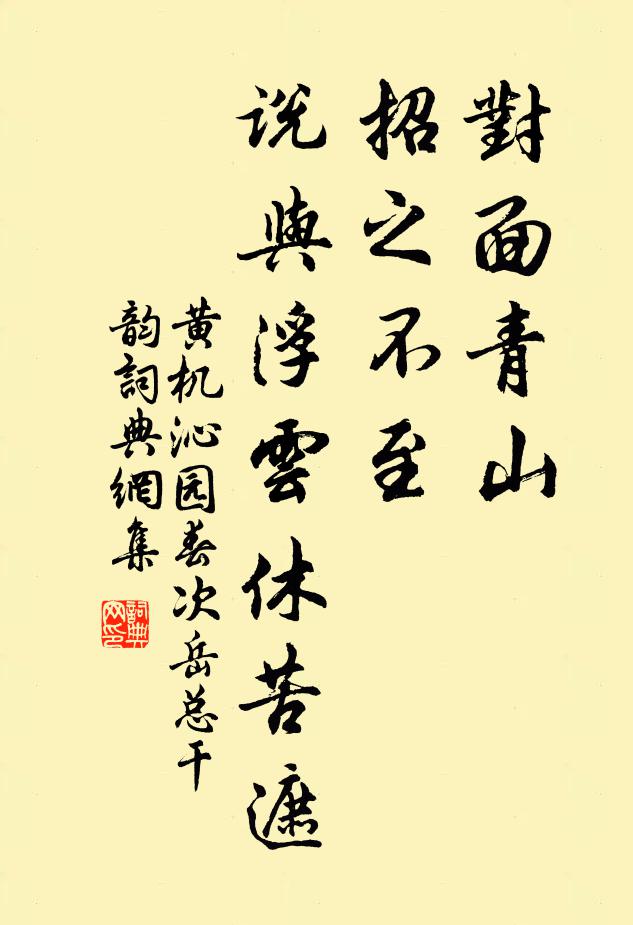 對面青山
招之不至
說與浮雲休苦遮
黄机沁园春次岳总干
韵詞典網集
詞典
网印